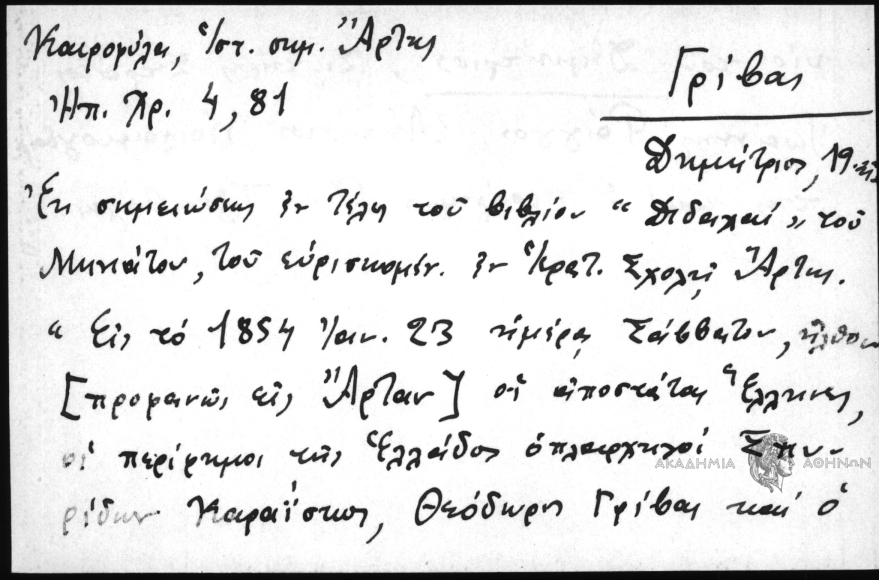 Καιροφύλα, Ἱστ. σημ. Ἄρτης
Ἠπ. Χρ. 4, 81
Γρίβας
Δημήτριος, 19
Ἐκ σημειώσεως ἐν τέλει τοῦ βιβλίου “Διδαχαί„ τοῦ
Μηνιάτου, τοῦ εὑρισκομέν. ἐν Ἱερατ. Σχολῇ Ἄρτης.
“Εἰς τό 1854 Ἰαν. 23 ἡμέρᾳ Σάββατον, ἦλθον
[προφανῶς εἰς Ἄρταν] οἱ ἀποστάται Ἕλληνες,
οἱ περίφημοι τῆς Ἑλλάδος ὁπλαρχηγοί Σπυ-
ρίδων Καραΐσκος, Θεόδωρος Γρίβας καί ὁ
ΑΚΑΔΗΜΙΑ ΑΘΗΝΩΝ